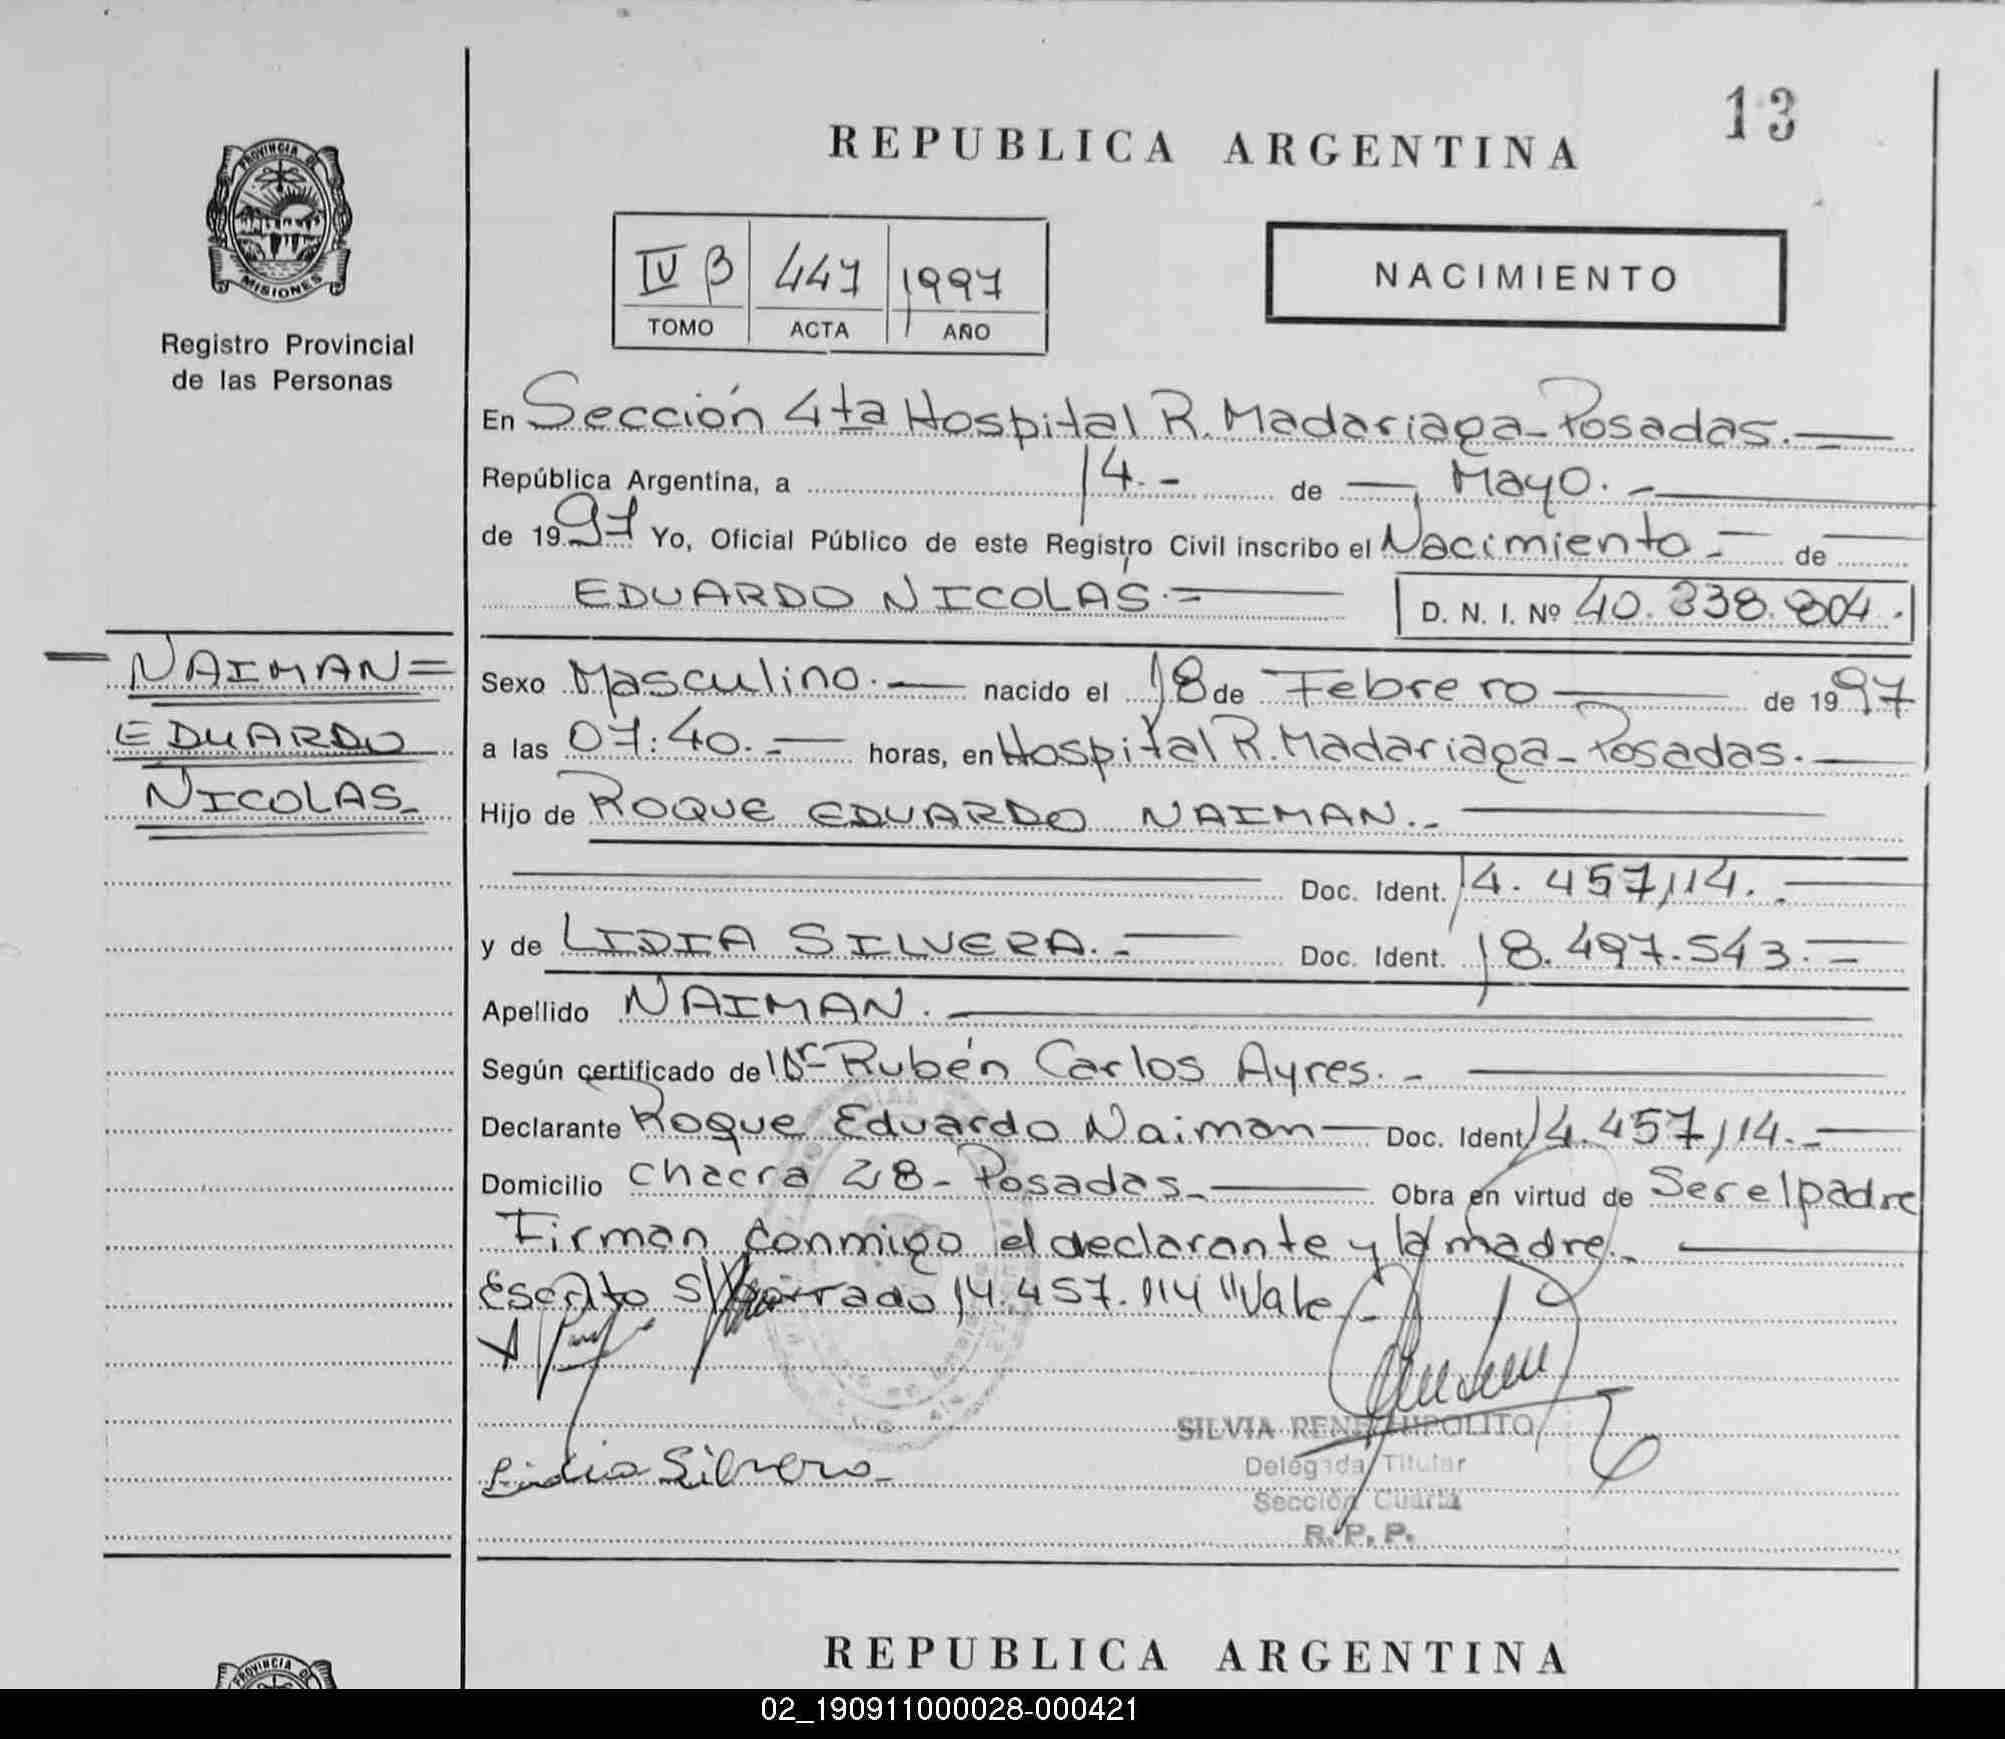 13
REPUBLICA ARGENTINA
PROVINCIA DE
MISIONES
Registro Provincial
de las Personas
IV B 447 1997
TOMO ACTA AÑO
NACIMIENTO
En Sección 4ta Hospital R. Madariaga - Posadas. —
República Argentina, a 14.- de — Mayo. -
de 1997 Yo, Oficial Público de este Registro Civil inscribo el Nacimiento - de
EDUARDO NICOLAS.= D. N. I. Nº 40.338.804.
— NAIMAN =
EDUARDO
NICOLAS_
Sexo Masculino. — nacido el 18 de Febrero — de 1997
a las 07:40. — horas, en Hospital R. Madariaga - Posadas. —
Hijo de ROQUE EDUARDO NAIMAN. -
Doc. Ident. 14.457,114. -
y de LIDIA SILVERA. - Doc. Ident. 18.497.543. =
Apellido NAIMAN. —
Según certificado de Dr Rubén Carlos Ayres. -
Declarante Roque Eduardo Naiman — Doc. Ident 14.457,114. -
Domicilio Chacra 28 - Posadas - Obra en virtud de Ser el padre
Firman conmigo el declarante y la madre. -
Escrito s/borrado 14.457.114 "Vale
SILVIA RENE HIPOLITO
Delegada Titular
Lidia Silvero -
Sección Cuarta
R. P. P.
REPUBLICA ARGENTINA
PROVINCIA DE
02_190911000028-000421